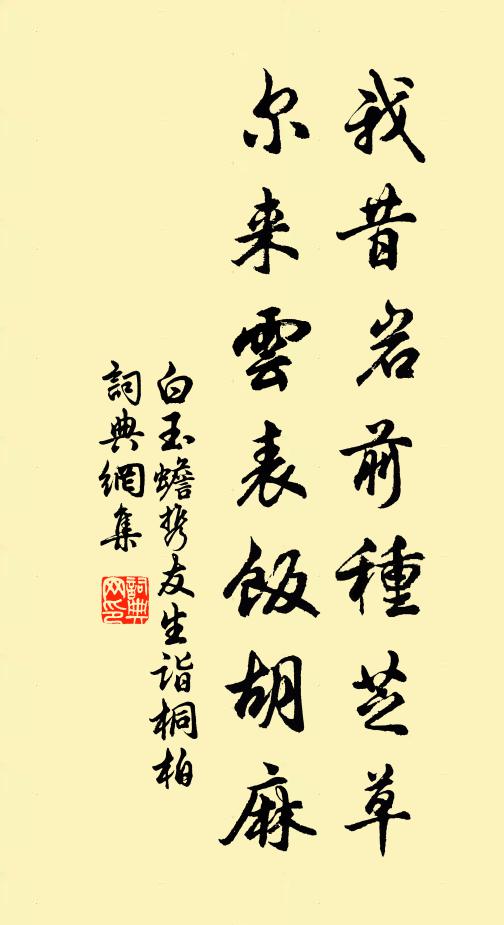 我昔岩前種芝草
尔来雲表飯胡麻
白玉蟾携友生诣桐柏
詞典網集
詞典網印